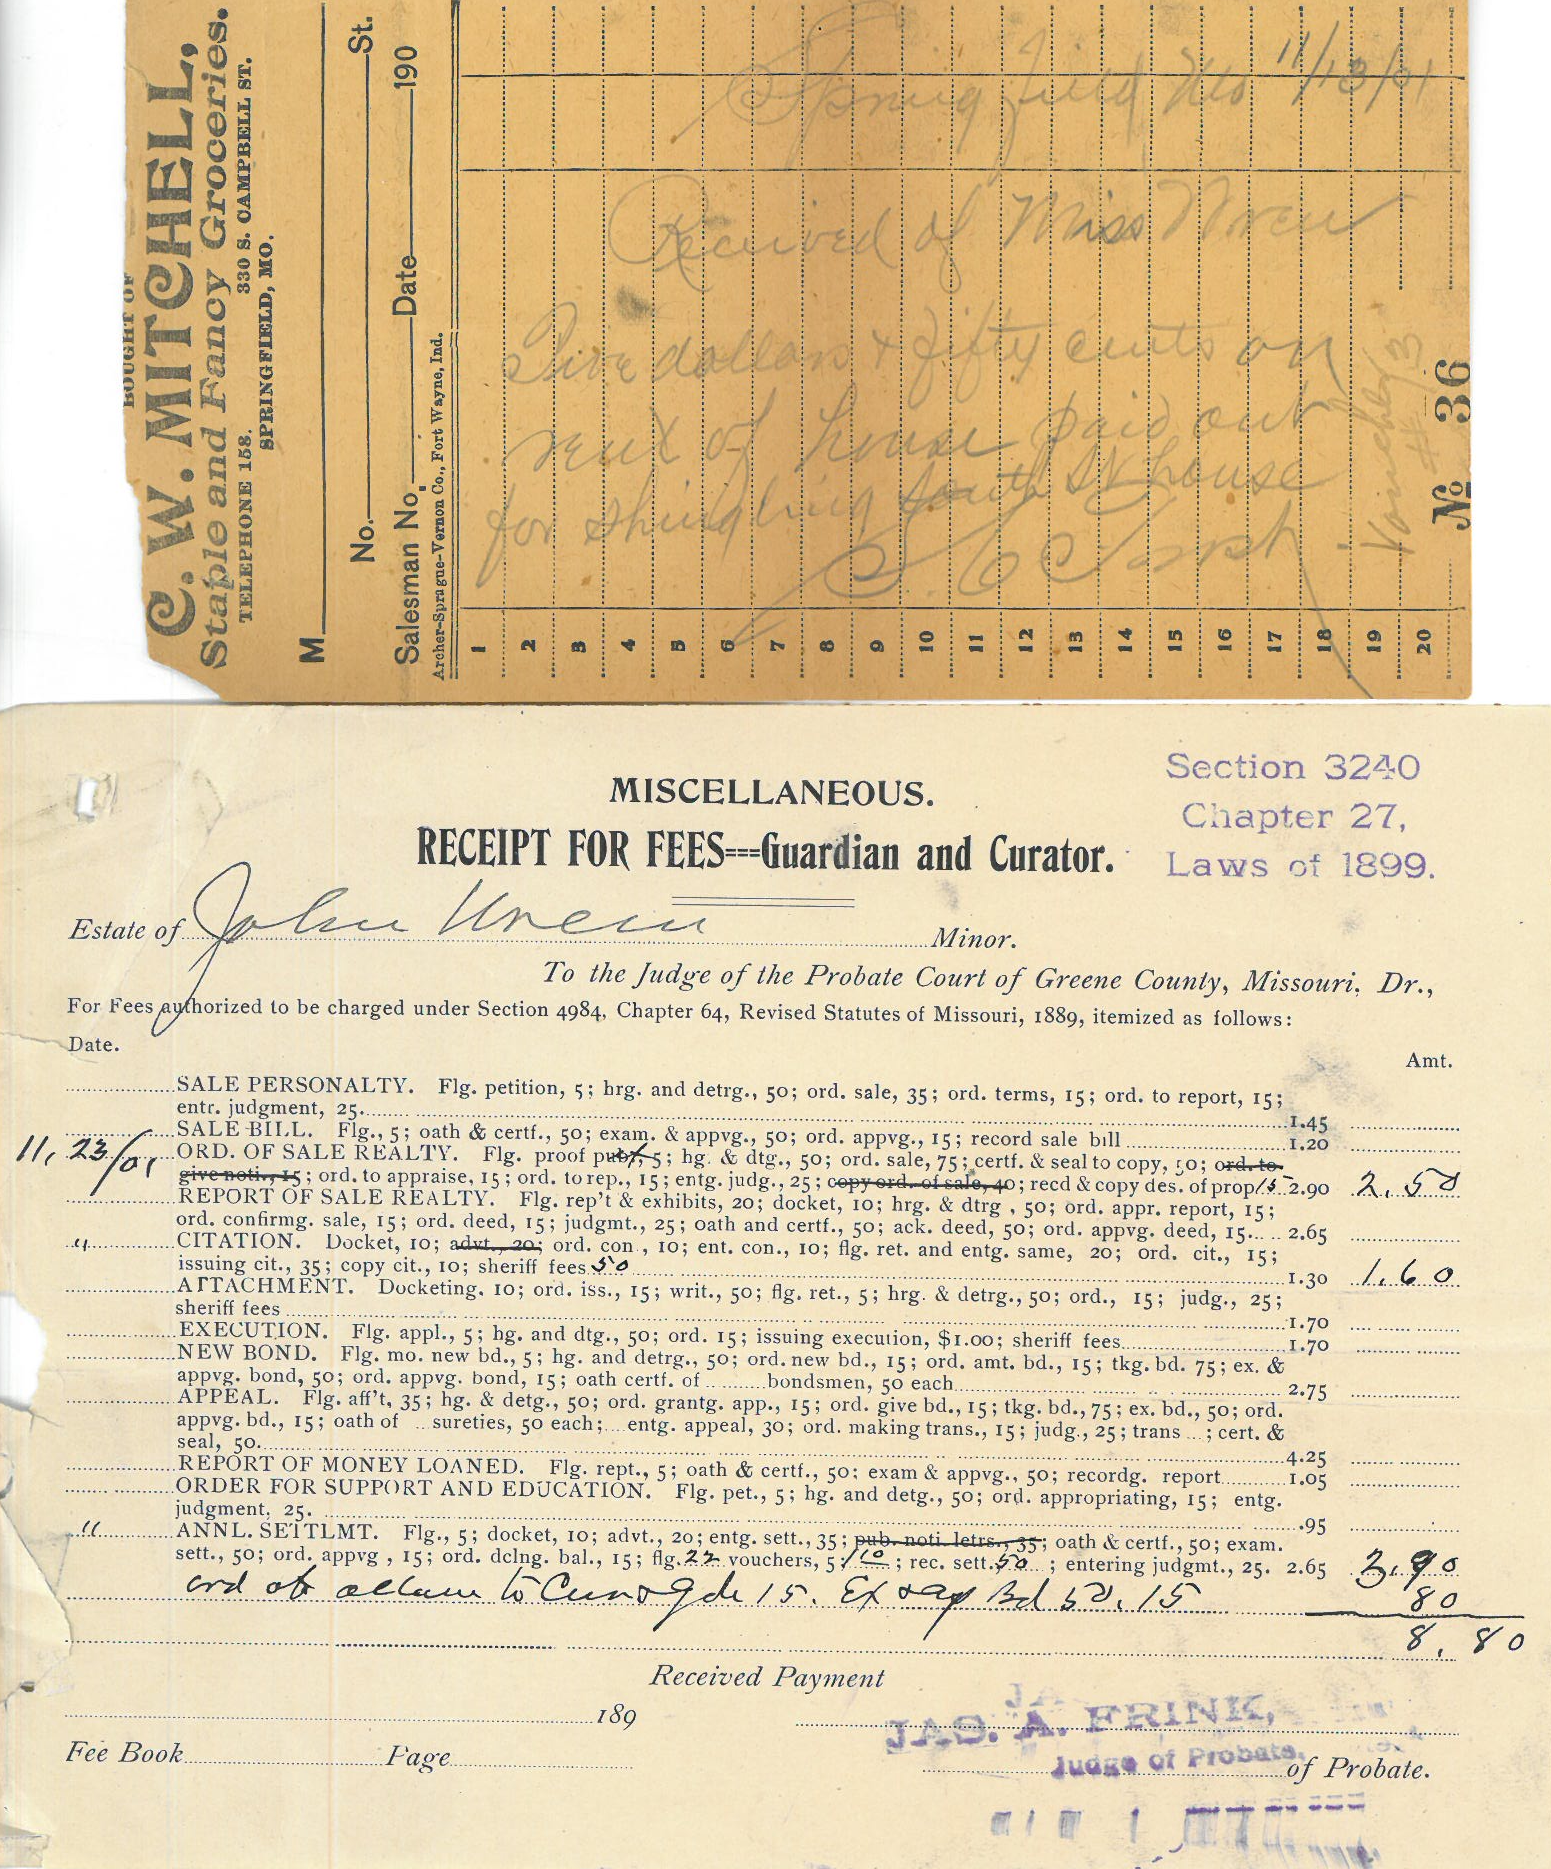 BOUGHT OF
C. W. MITCHELL,
Staple and Fancy Groceries.
TELEPHONE 158. 330 S. CAMPBELL ST.
SPRINGFIELD, MO.
M
No. St.
Salesman No. Date 190
Archer-Sprague-Vernon Co., Fort Wayne, Ind.
Springfield Mo 11/13/01
Received of Miss Wren
Five dollars & fifty cents on
rent of house paid out
for shingling South St house
1
2
3
4
5
6
7
8
9
10
11
12
13
14
15
16
17
18
19
20
Voucher
# 13
No 36
MISCELLANEOUS.
RECEIPT FOR FEES===Guardian and Curator.
Section 3240
Chapter 27,
Laws of 1899.
Estate of John Wrenn Minor.
To the Judge of the Probate Court of Greene County, Missouri, Dr.,
For Fees authorized to be charged under Section 4984, Chapter 64, Revised Statutes of Missouri, 1889, itemized as follows:
Date. Amt.
SALE PERSONALTY. Flg. petition, 5; hrg. and detrg., 50; ord. sale, 35; ord. terms, 15; ord. to report, 15;
entr. judgment, 25. 1.45
SALE BILL. Flg., 5; oath & certf., 50; exam. & appvg., 50; ord. appvg., 15; record sale bill 1.20
11, 23/01 ORD. OF SALE REALTY. Flg. proof pub., 5; hg. & dtg., 50; ord. sale, 75; certf. & seal to copy, 50; ord. to
give noti., 15; ord. to appraise, 15; ord. to rep., 15; entg. judg., 25; copy ord. of sale, 40; recd & copy des. of prop 15 2.90 2.50
REPORT OF SALE REALTY. Flg. rep't & exhibits, 20; docket, 10; hrg. & dtrg, 50; ord. appr. report, 15;
ord. confirmg. sale, 15; ord. deed, 15; judgmt., 25; oath and certf., 50; ack. deed, 50; ord. appvg. deed, 15. 2.65
" CITATION. Docket, 10; advt., 20; ord. con., 10; ent. con., 10; flg. ret. and entg. same, 20; ord. cit., 15;
issuing cit., 35; copy cit., 10; sheriff fees 50 1.30 1.60
ATTACHMENT. Docketing. 10; ord. iss., 15; writ., 50; flg. ret., 5; hrg. & detrg., 50; ord., 15; judg., 25;
sheriff fees 1.70
EXECUTION. Flg. appl., 5; hg. and dtg., 50; ord. 15; issuing execution, $1.00; sheriff fees 1.70
NEW BOND. Flg. mo. new bd., 5; hg. and detrg., 50; ord. new bd., 15; ord. amt. bd., 15; tkg. bd. 75; ex. &
appvg. bond, 50; ord. appvg. bond, 15; oath certf. of bondsmen, 50 each 2.75
APPEAL. Flg. aff't, 35; hg. & detg., 50; ord. grantg. app., 15; ord. give bd., 15; tkg. bd., 75; ex. bd., 50; ord.
appvg. bd., 15; oath of sureties, 50 each; entg. appeal, 30; ord. making trans., 15; judg., 25; trans ; cert. &
seal, 50. 4.25
REPORT OF MONEY LOANED. Flg. rept., 5; oath & certf., 50; exam & appvg., 50; recordg. report 1.05
ORDER FOR SUPPORT AND EDUCATION. Flg. pet., 5; hg. and detg., 50; ord. appropriating, 15; entg.
judgment, 25. .95
" ANNL. SETTLMT. Flg., 5; docket, 10; advt., 20; entg. sett., 35; pub. noti. letrs., 35; oath & certf., 50; exam.
sett., 50; ord. appvg, 15; ord. dclng. bal., 15; flg. 22 vouchers, 5; 1 10; rec. sett. 50; entering judgmt., 25. 2.65 3.90
15. Ex & ap Bd 50, 15 80
8.80
Received Payment
189
JAS. A. FRINK,
Judge of Probate.
Fee Book Page of Probate.